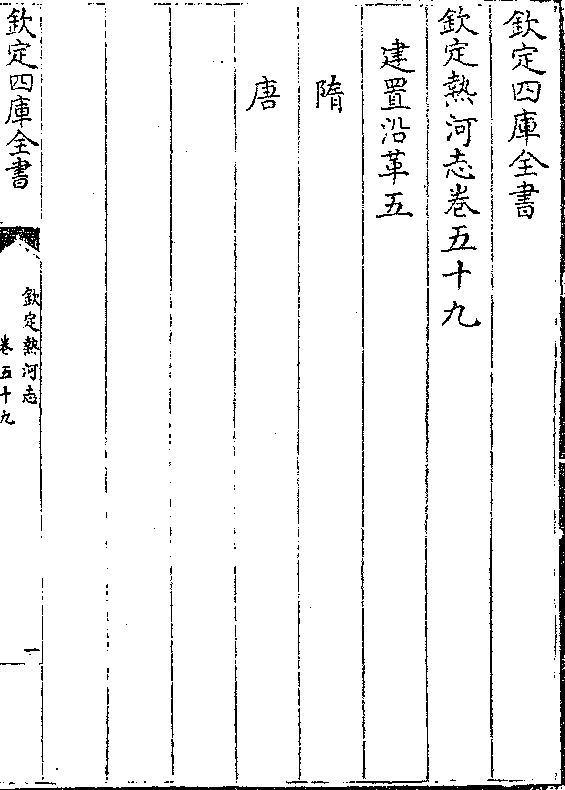 欽定四庫全書
欽定熱河志卷五十九
建置沿革五
隋
唐
欽定四庫全書
欽定熱河志
卷五十九
一